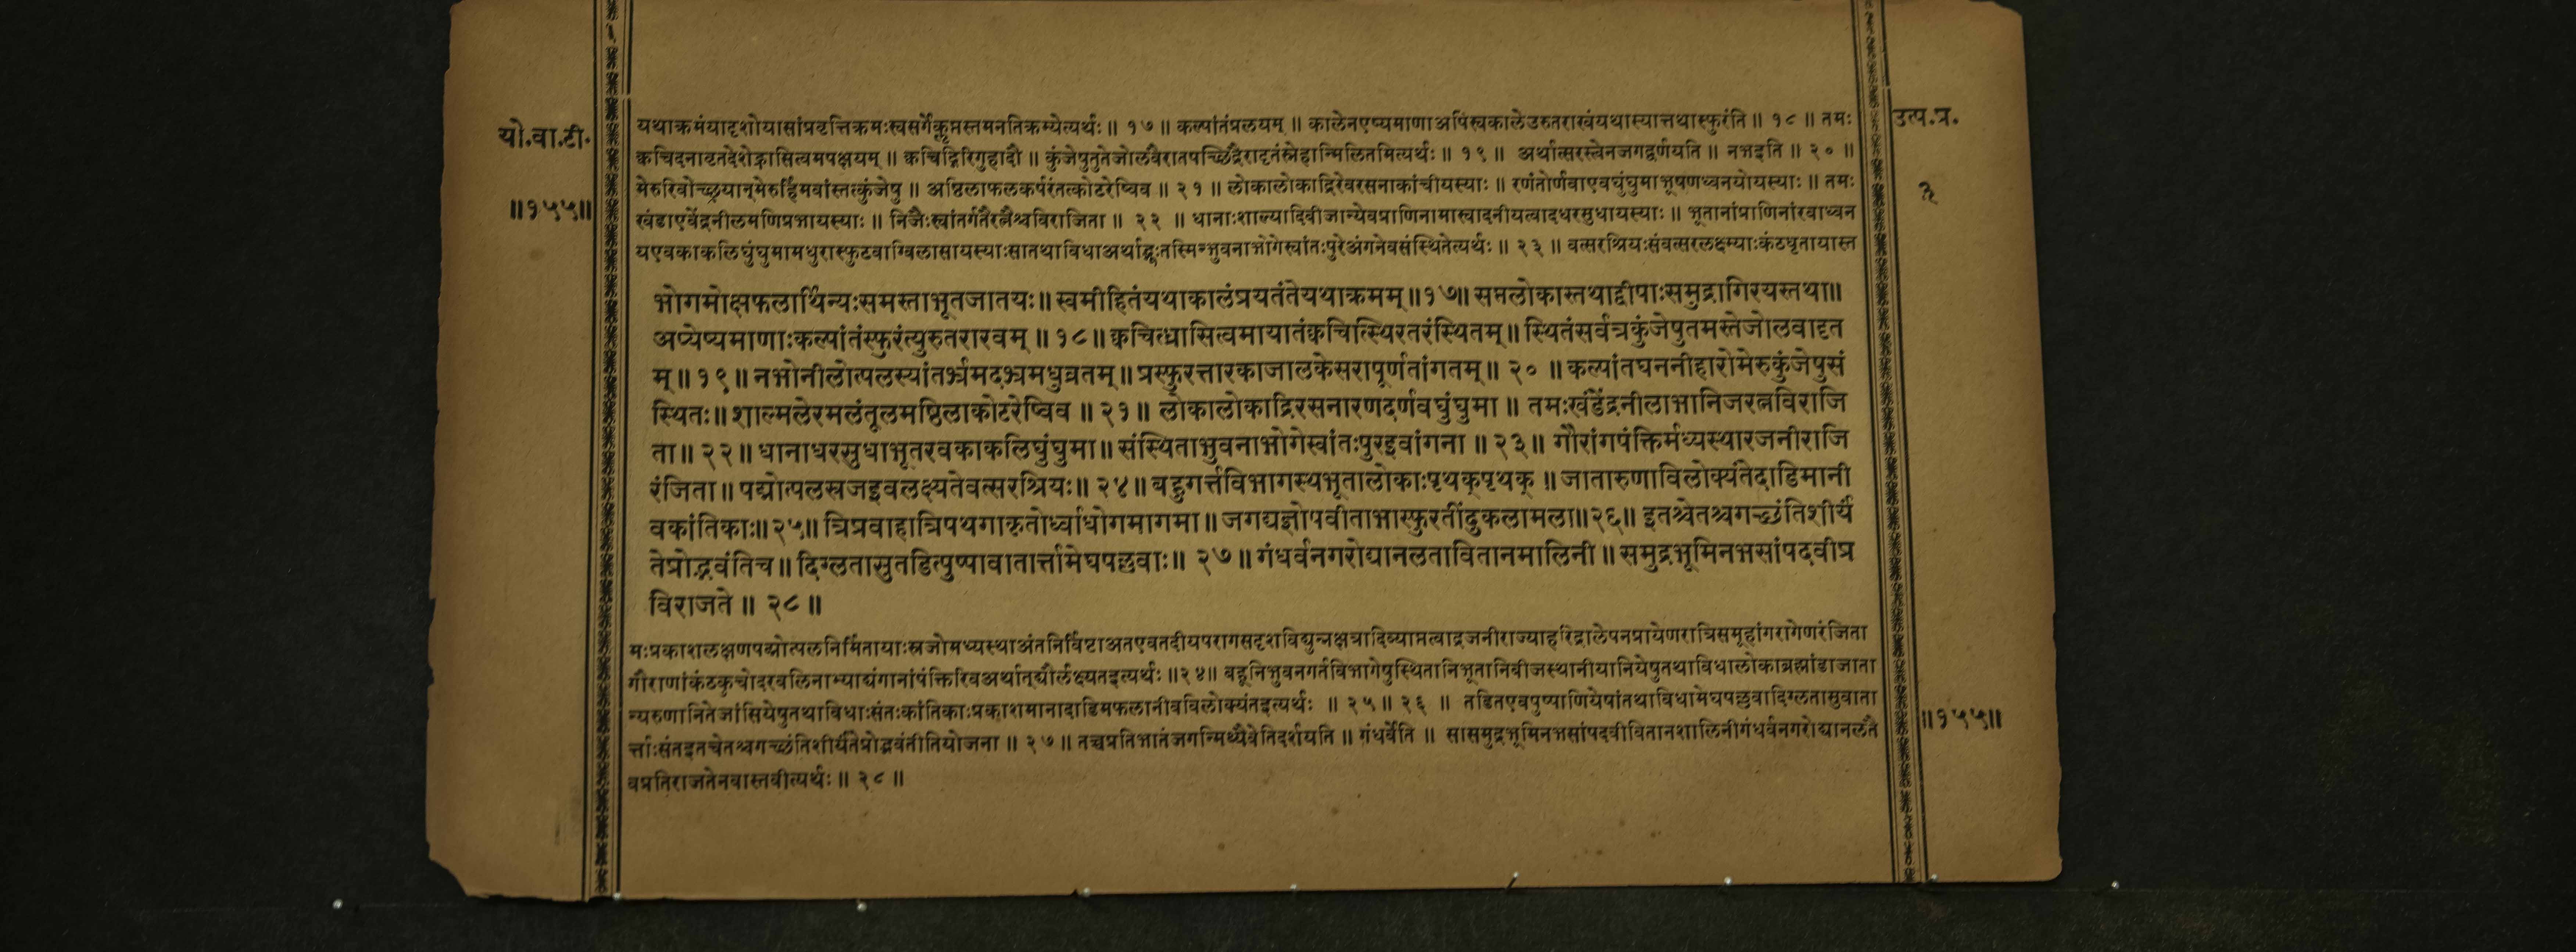 यो.वा.टी.
॥१५५॥
यथाक्रमंयादृशोयासांप्रवृत्तिक्रमःस्वसर्गेकॢप्तस्तमनतिक्रम्येत्यर्थः ॥ १७ ॥ कल्पांतंप्रलयम् ॥ कालेनएष्यमाणाअपिस्वकालेउरुतरारवंयथास्यात्तथास्फुरंति ॥ १८ ॥ तमः
क्वचिदनावृतदेशेह्रासित्वमपक्षयम् ॥ क्वचिद्गिरिगुहादौ ॥ कुंजेषुतुतेजोलवैरातपच्छिद्रैरादृतंस्नेहान्मिलितमित्यर्थः ॥ १९ ॥ अर्थात्सरस्त्वेनजगद्वर्णयति ॥ नभइति ॥ २० ॥
मेरुरिवोच्छ्रयान्मेरुर्हिमवांस्तत्कुंजेषु ॥ अष्ठिलाफलकर्परंतत्कोटरेष्विव ॥ २१ ॥ लोकालोकाद्रिरेवरसनाकांचीयस्याः ॥ रणंतोर्णवाएवघुंघुमाभूषणध्वनयोयस्याः ॥ तमः
खंडाएवेंद्रनीलमणिप्रभायस्याः ॥ निजैःस्वांतर्गतैरत्नैश्चविराजिता ॥ २२ ॥ धानाःशाल्यादिबीजान्येवप्राणिनामास्वादनीयत्वादधरसुधायस्याः ॥ भूतानांप्राणिनांरवाध्वन
यएवकाकलिघुंघुमामधुरास्फुटवाग्विलासायस्याःसातथाविधाअर्थाद्भूःतस्मिन्भुवनाभोगेस्वांतःपुरेअंगनेवसंस्थितेत्यर्थः ॥ २३ ॥ वत्सरश्रियःसंवत्सरलक्ष्म्याःकंठधृतायास्त
भोगमोक्षफलार्थिन्यःसमस्ताभूतजातयः॥ स्वमीहितंयथाकालंप्रयतंतेयथाक्रमम् ॥१७॥ सप्तलोकास्तथाद्वीपाःसमुद्रागिरयस्तथा॥
अप्येष्यमाणाःकल्पांतंस्फुरंत्युरुतरारवम् ॥ १८ ॥ क्वचिद्ध्रासित्वमायातंक्वचित्स्थिरतरंस्थितम् ॥ स्थितंसर्वत्रकुंजेषुतमस्तेजोलवादृत
म् ॥ १९ ॥ नभोनीलोत्पलस्यांतर्भ्रमदभ्रमधुव्रतम् ॥ प्रस्फुरत्तारकाजालकेसरापूर्णतांगतम् ॥ २० ॥ कल्पांतघननीहारोमेरुकुंजेषुसं
स्थितः ॥ शाल्मलेरमलंतूलमष्ठिलाकोटरेष्विव ॥ २१ ॥ लोकालोकाद्रिरसनारणदर्णवघुंघुमा ॥ तमःखंडेंद्रनीलाभानिजरत्नविराजि
ता ॥ २२ ॥ धानाधरसुधाभूतरवकाकलिघुंघुमा ॥ संस्थिताभुवनाभोगेस्वांतःपुरइवांगना ॥ २३ ॥ गौरांगपंक्तिर्मध्यस्थारजनीराजि
रंजिता ॥ पद्मोत्पलस्रजइवलक्ष्यतेवत्सरश्रियः ॥ २४ ॥ बहुगर्त्तविभागस्थभूतालोकाःपृथक्पृथक् ॥ जातारुणाविलोक्यंतेदाडिमानी
वकांतिकाः॥२५॥ त्रिप्रवाहात्रिपथगाकृतोर्ध्वाधोगमागमा ॥ जगद्यज्ञोपवीताभास्फुरतींदुकलामला॥२६॥ इतश्चेतश्चगच्छंतिशीर्यं
तेप्रोद्भवंतिच ॥ दिग्लतासुतडित्पुष्पावातार्त्तामेघपल्लवाः ॥ २७ ॥ गंधर्वनगरोद्यानलतावितानमालिनी ॥ समुद्रभूमिनभसांपदवीप्र
विराजते ॥ २८ ॥
मःप्रकाशलक्षणपद्मोत्पलनिर्मितायाःस्रजोमध्यस्थाअंतर्निविष्टाअतएवतदीयपरागसदृशविद्युन्नक्षत्रादिव्याप्तत्वाद्रजनीराज्याहरिद्रालेपनप्रायेणरात्रिसमूहांगरागेणरंजिता
गौराणांकंठकुचोदरवलिनाभ्याद्यंगानांपंक्तिरिवअर्थात्द्यौर्लक्ष्यतइत्यर्थः ॥२४॥ बहूनिभुवनगर्तविभागेषुस्थितानिभूतानिबीजस्थानीयानियेषुतथाविधालोकाब्रह्मांडाजाता
न्यरुणानितेजांसियेषुतथाविधाःसंतःकांतिकाःप्रकाशमानादाडिमफलानीवविलोक्यंतइत्यर्थः ॥ २५ ॥ २६ ॥ तडितएवपुष्पाणियेषांतथाविधामेघपल्लवादिग्लतासुवाता
र्त्ताःसंतइतचेतश्चगच्छंतिशीर्यंतेप्रोद्भवंतीतियोजना ॥ २७ ॥ तच्चप्रतिभातंजगन्मिथ्यैवेतिदर्शयति ॥ गंधर्वेति ॥ सासमुद्रभूमिनभसांपदवीवितानशालिनीगंधर्वनगरोद्यानलतै
वप्रतिराजतेनवास्तवीत्यर्थः ॥ २८ ॥
उत्प.प्र.
३
॥१५५॥